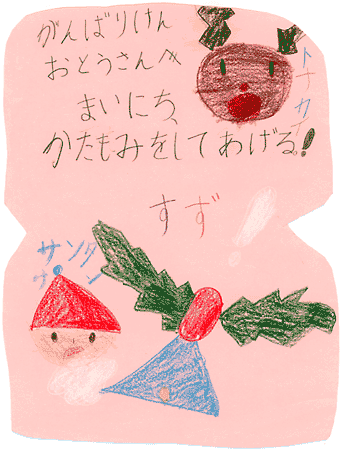 がんばりけん
おとうさんへ
まいにち、
かたもみをしてあげる。!
トナカイ
すず
!
サンタ
サン